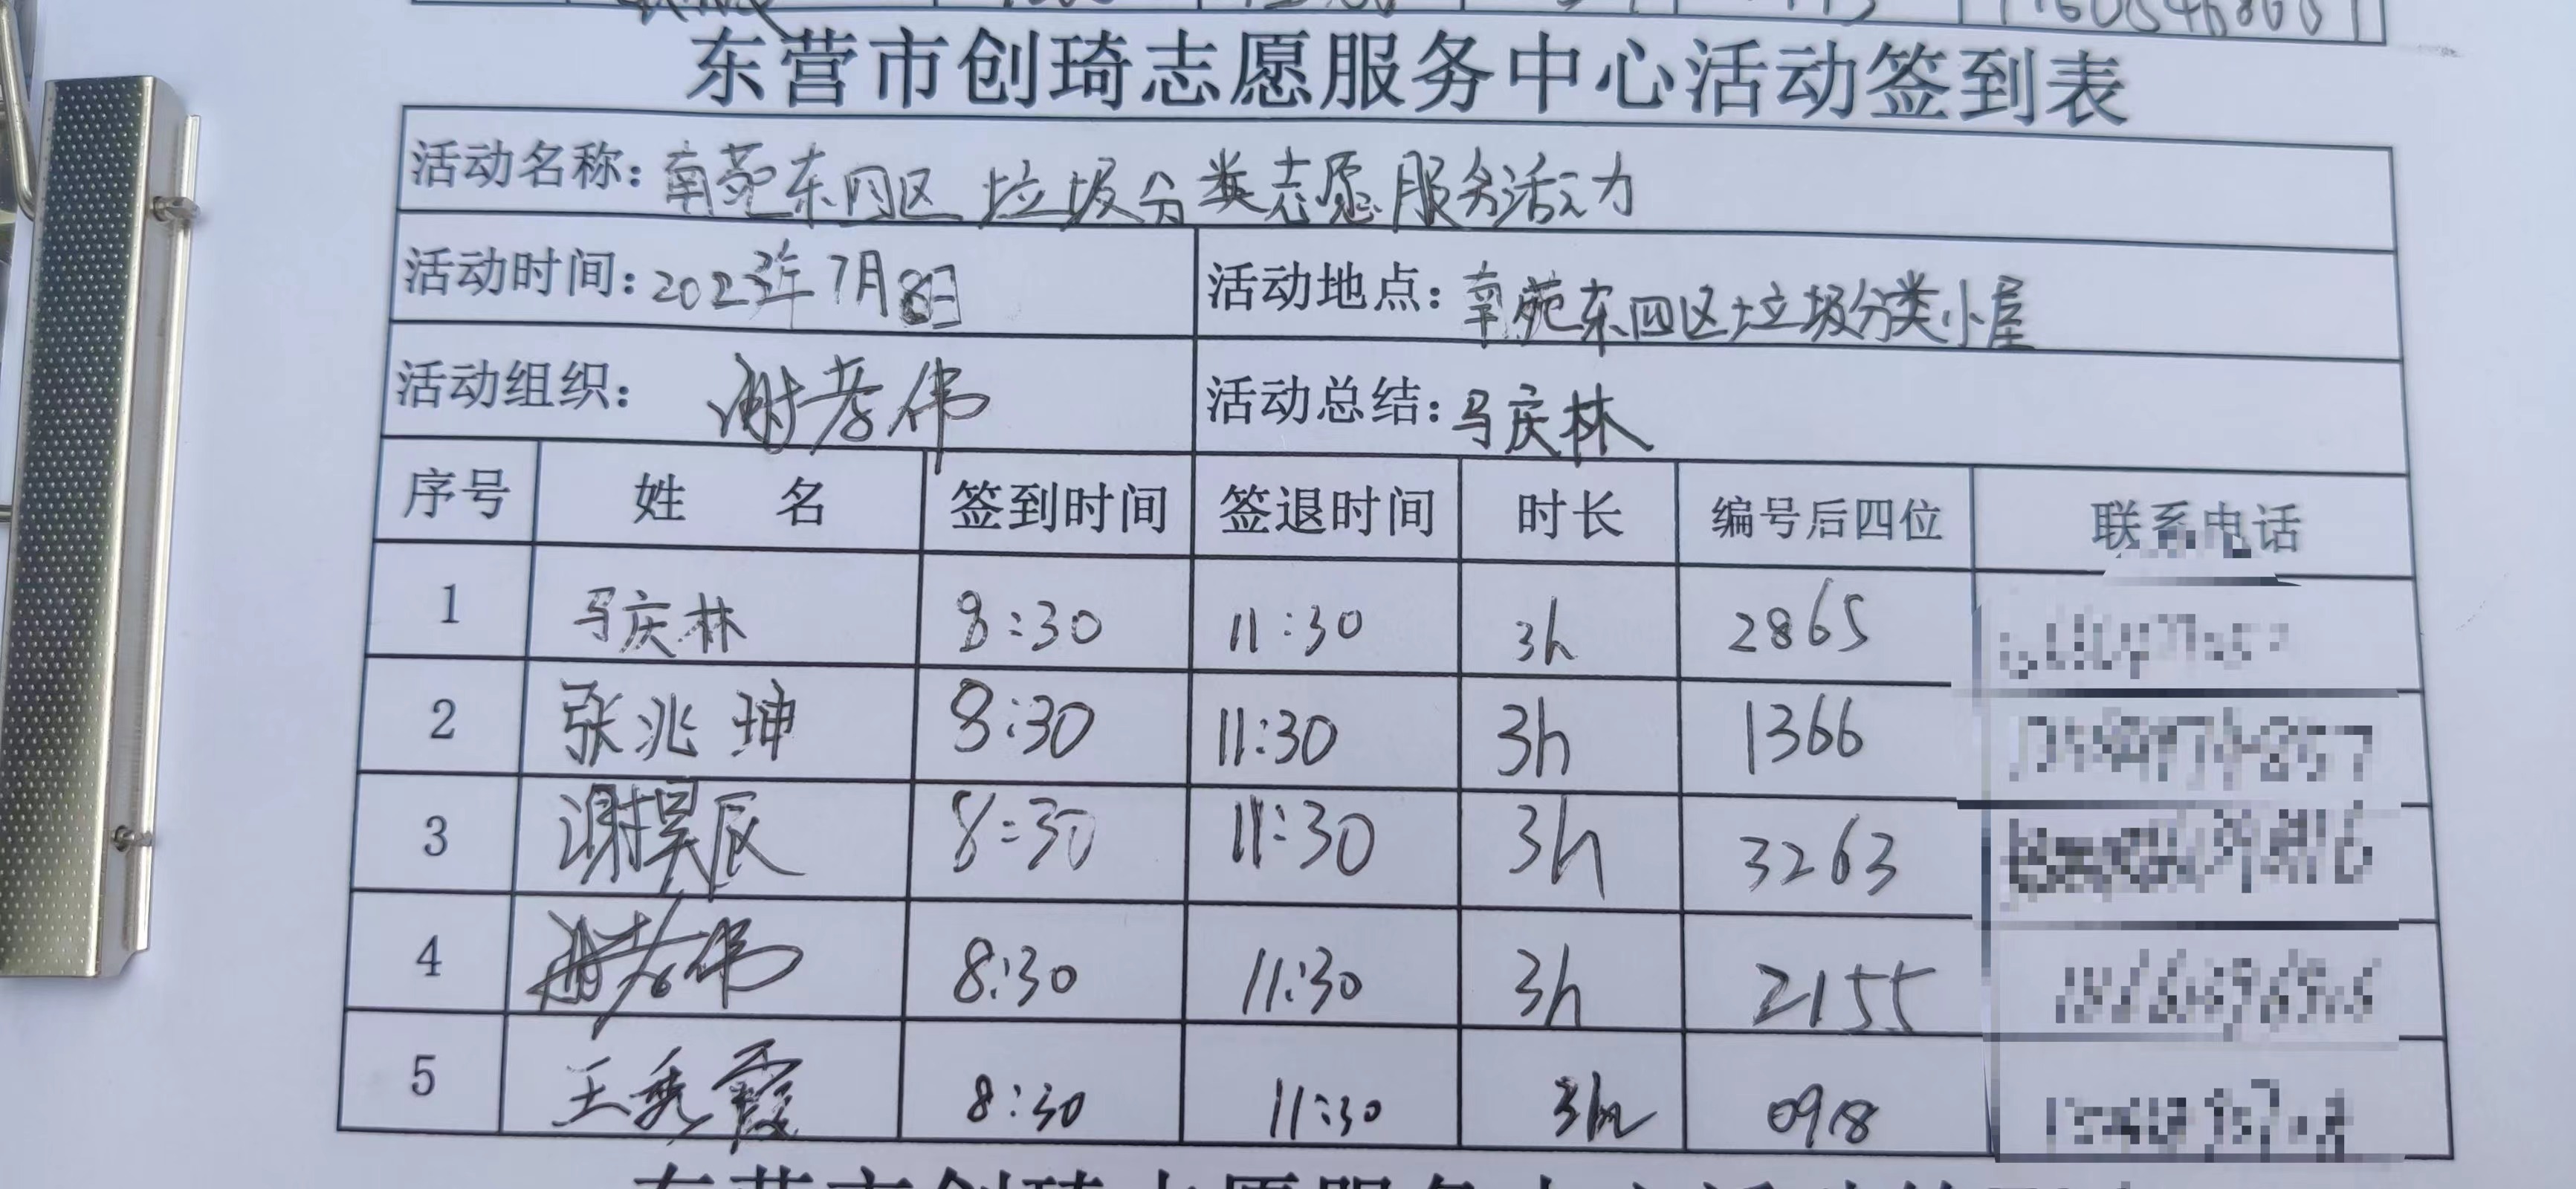 东营市创琦志愿服务中心活动签到表
活动名称：南苑东四区垃圾分类志愿服务活动
活动时间：2023年7月8日 活动地点：南苑东四区垃圾分类小屋
活动组织：谢孝伟 活动总结：马庆林
序号 姓名 签到时间 签退时间 时长 编号后四位 联系电话
1 马庆林 8:30 11:30 3h 2865
2 张兆珅 8:30 11:30 3h 1366
3 谢昊辰 8:30 11:30 3h 3263
4 谢孝伟 8:30 11:30 3h 2155
5 王秀霞 8:30 11:30 3h 0918